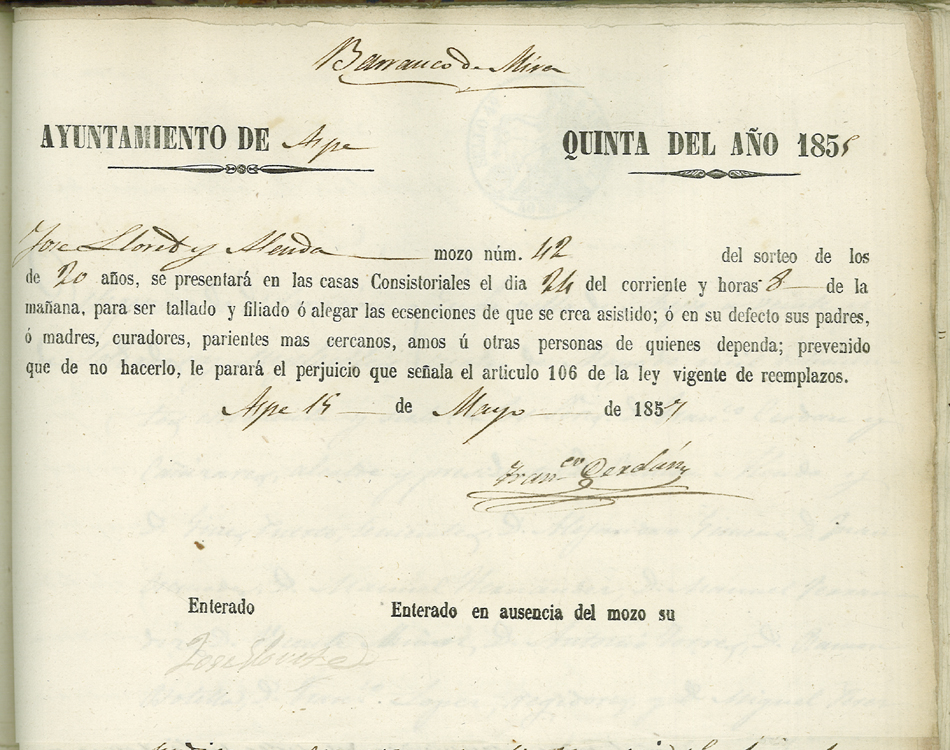 Barranco de Mira
AYUNTAMIENTO DE Aspe
QUINTA DEL AÑO 185
Jose Lloret y Alenda mozo núm. 42 del sorteo de los
de 20 años, se presentará en las casas Consistoriales el dia 24 del corriente y horas 8 de la
mañana, para ser tallado y filiado ó alegar las ecsenciones de que se crea asistido; ó en su defecto sus padres,
ó madres, curadores, parientes mas cercanos, amos ú otras personas de quienes dependa; prevenido
que de no hacerlo, le parará el perjuicio que señala el articulo 106 de la ley vigente de reemplazos.
Aspe 15 de Mayo de 1857
Fran.co Cerdán
Enterado
Enterado en ausencia del mozo su
Jose